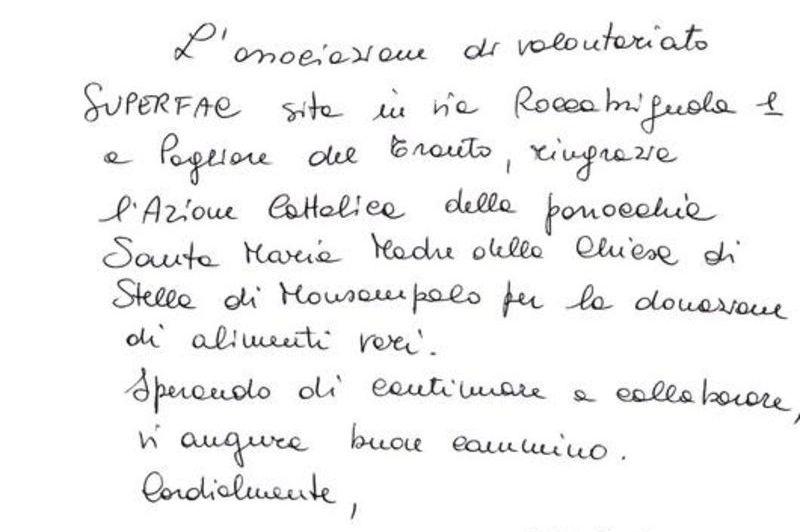 L'associazione di volontariato
SUPERFAC sita in via Roccabrignola 1
a Pagliare del Tronto, ringrazia
l'Azione Cattolica della parrocchia
Santa Maria Madre della Chiesa di
Stella di Monsampolo per la donazione
di alimenti vari.
Sperando di continuare a collaborare,
vi augura buon cammino.
Cordialmente,